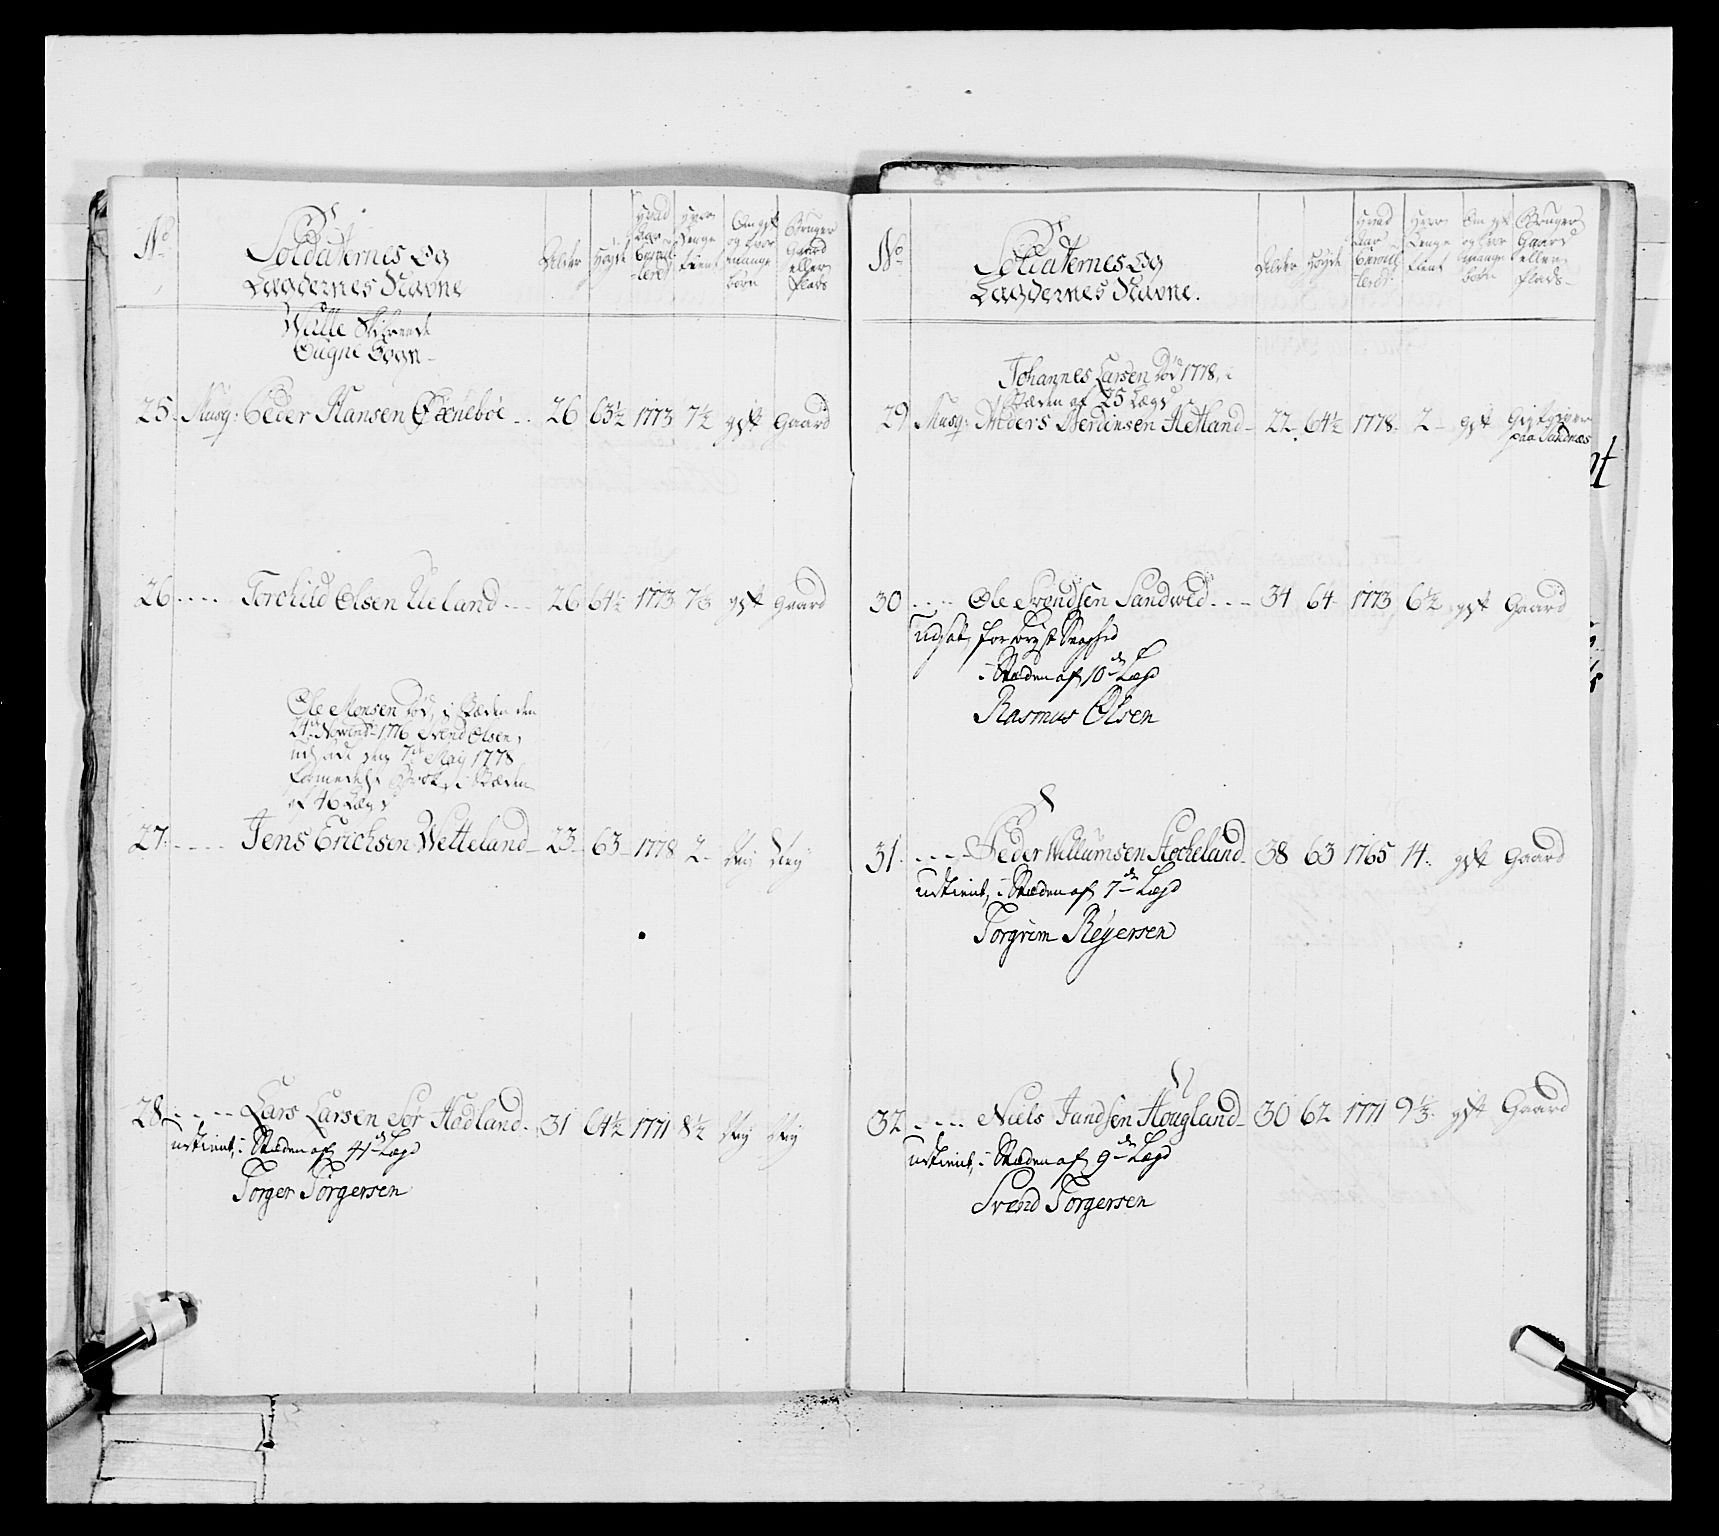 No.
Soldaternes Og
Lægdernes Navne
Alder
Høyde
Hvad Aar Enroullerdt
Hvor Lenge tient
Om gift og hvor mange børn
Bruger Gaard eller Plads
Sogn
25. Musq: Peder Hansen Øxnebøe .. 26 63½ 1773 7½ gift Gaard
26 .... Torchild Olsen Ueland ... 26 64½ 1773 7½ gift Gaard
Ole Monsen død, i Stæden den
Novembr 1776 Svend Olsen,
udsadt den 7de Maij 1778
formedelst Brok, i Stæden
af 46 Lægd
27. .... Jens Erichsen Wetteland 23 63 1778 2 Nej Nej
28. .... Lars Larsen Sør Hadland. 31 64½ 1771 8½ Nej Nej
udtient, i Stæden af 41de Lægd
Torger Torgersen
No.
Soldaternes Og
Lægdernes Navne.
Alder
Høyde
Hvad Aar Enroullerdt
Hvor Lenge tient
Om gift og hvor mange børn
Bruger Gaard eller Plads
Johannes Larsen død 1778, i
Stæden af 25 Lægd
29 Musq: Anders Herdinsen Hetland 22. 64½ 1778. 2 gift
paa Sandnæs
30 .... Ole Svendsen Sandved ... 34 64 1773 6½ gift Gaard
Udsat, for bryst Svaghed
i Stæden af 10de Lægd
Rasmus Olsen
31. .... Peder Willumsen Stocheland 38 63 1765 14. gift Gaard
udtient, i Stæden af 7de Lægd
Torgrim Reyersen
32 .... Niels Jandsen Hougland 30 62 1771 9½ gift Gaard
udtient, i Stæden af 9de Lægd
Svend Torgersen